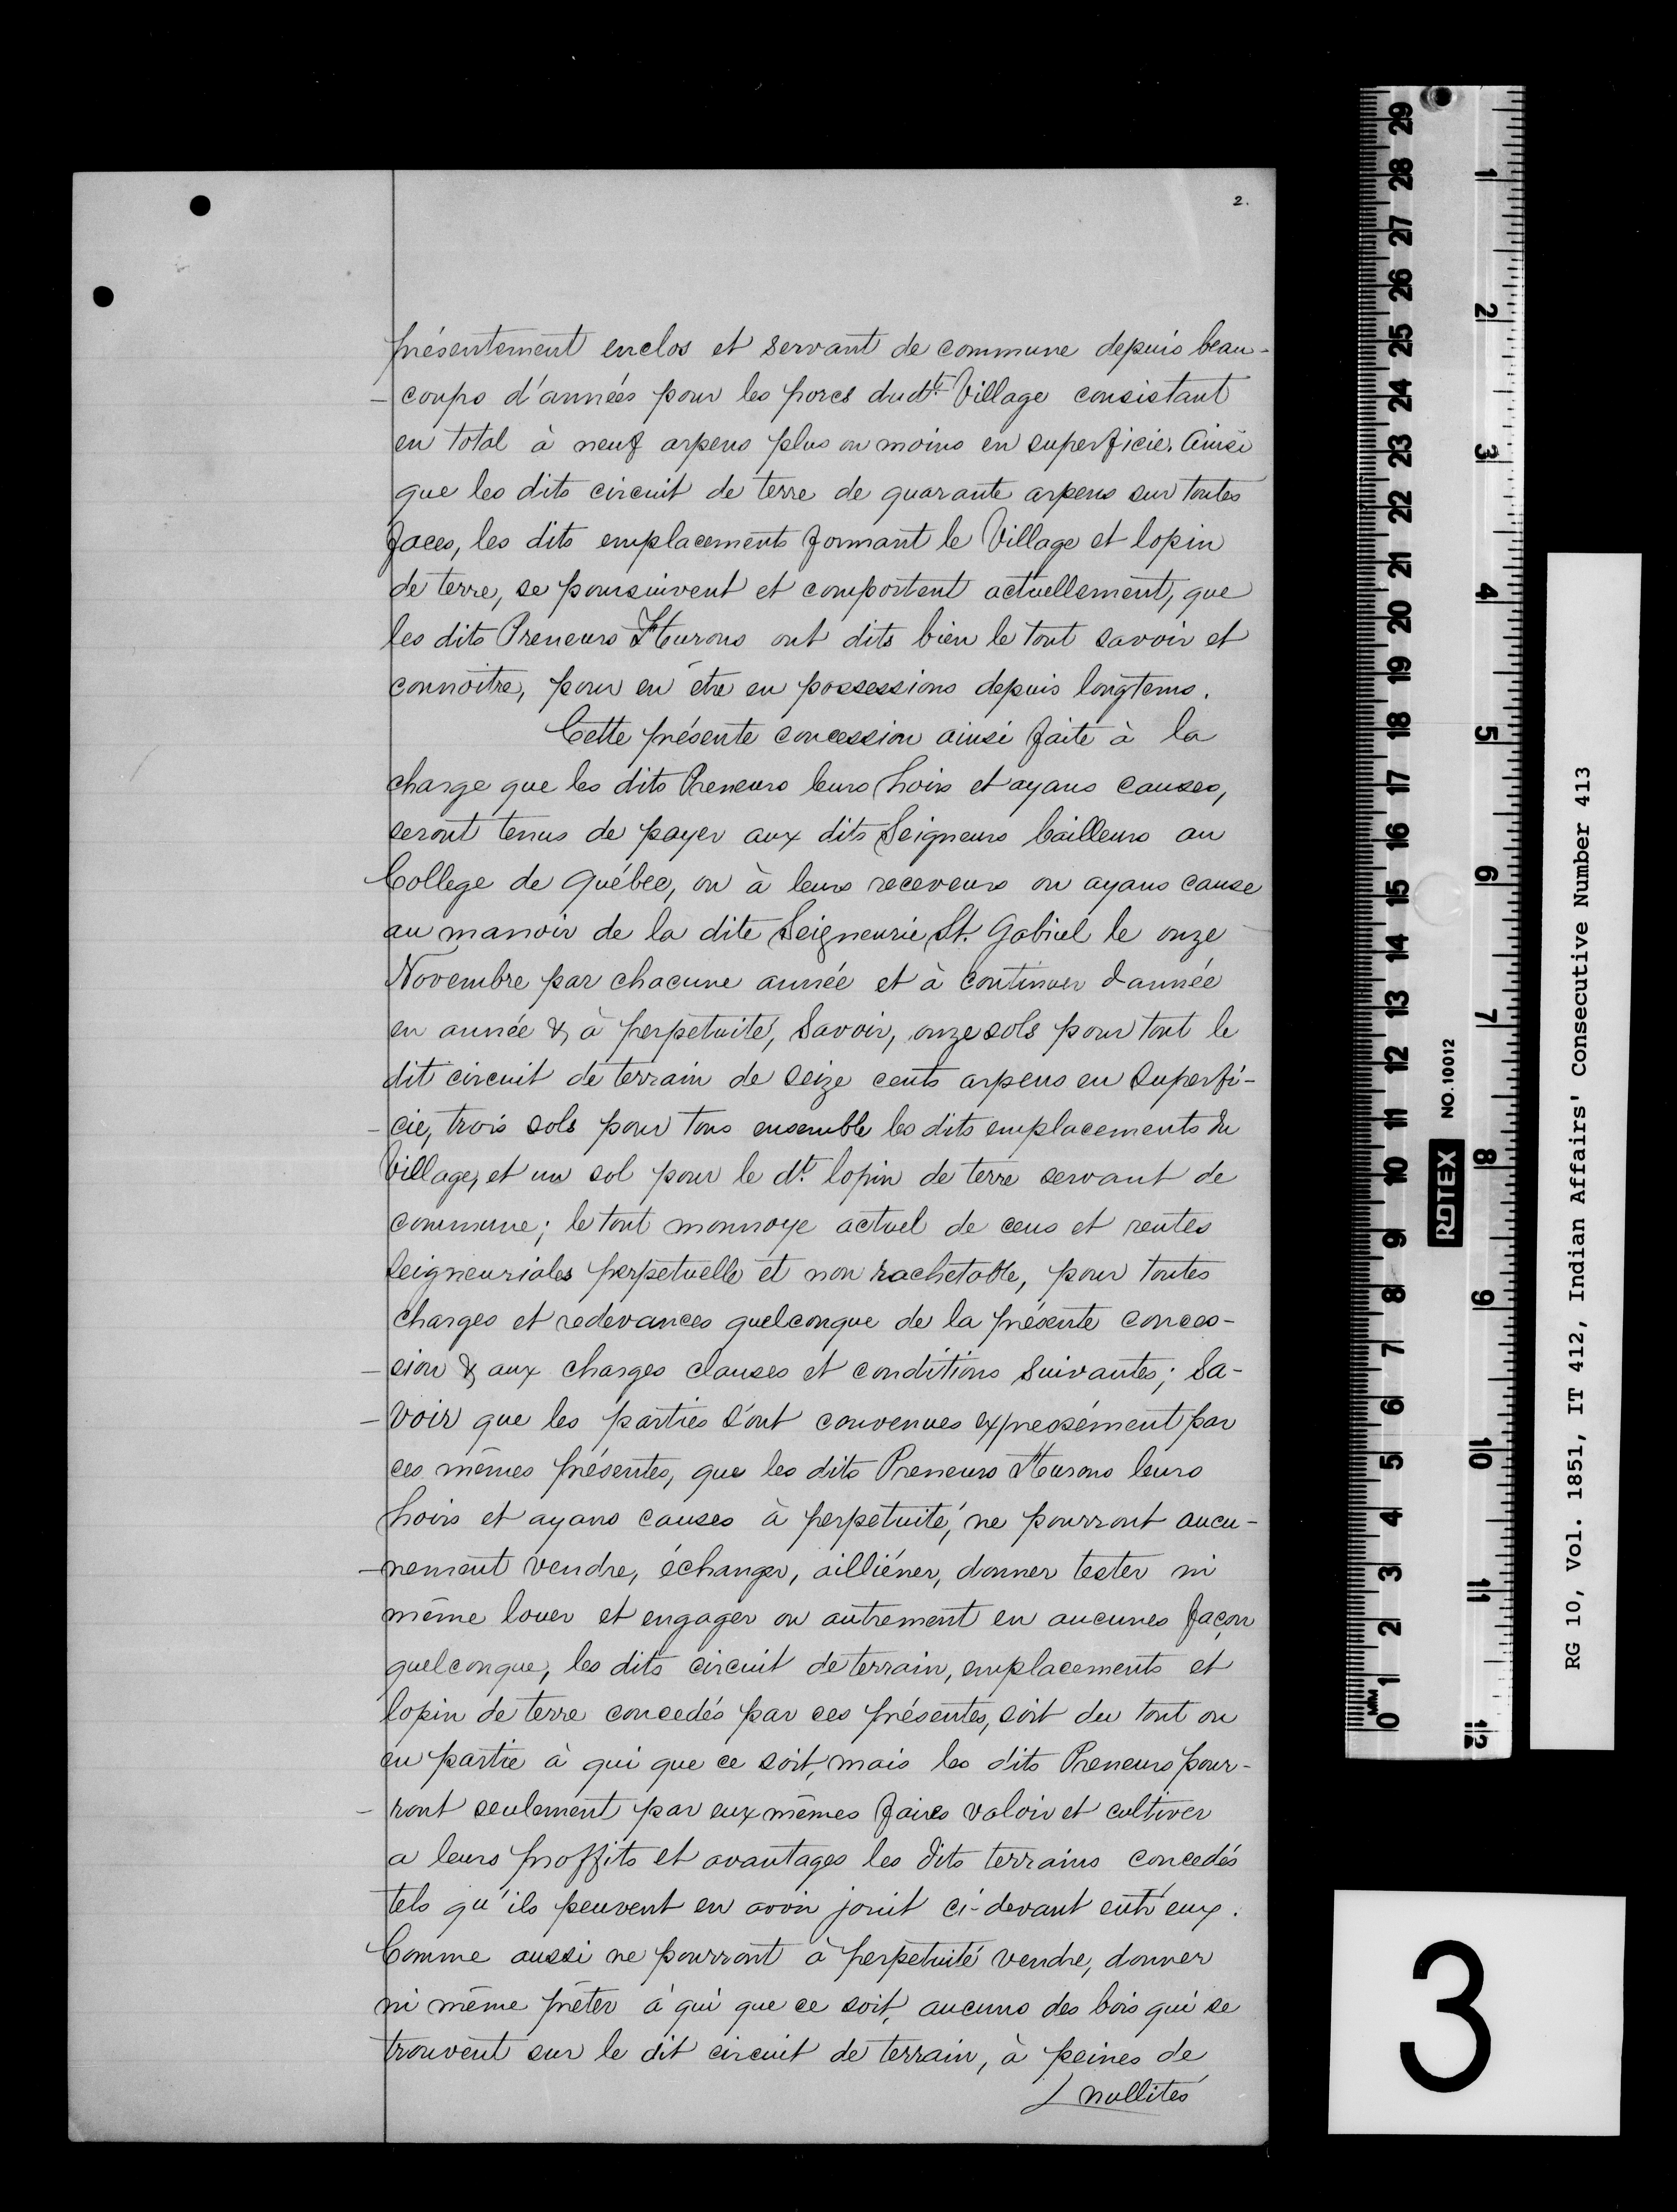 2.
présentement enclos et servant de commune depuis beau-
-coups d'années pour les porcs dudt. Village consistant
en total à neuf arpens plus ou moins en superficie. Ainsi
que les dits circuit de terre de quarante arpens sur toutes
faces, les dits emplacements formant le Village et lopin
de terre, se poursuivent et comportent actuellement, que
les dits Preneurs Hurons ont dits bien le tout savoir et
connoitre, pour en être en possessions depuis longtems.
Cette présente concession ainsi faite à la
charge que les dits Preneurs leurs hoirs et ayans causes,
seront tenus de payer aux dits Seigneurs bailleurs au
College de Québec, ou à leurs receveurs ou ayans cause
au manoir de la dite Seigneurie St. Gabriel le onze
Novembre par chacune année et à continuer d'année
en année & à perpetuité, Savoir, onze sols pour tout le
dit circuit de terrain de seize cents arpens en Superfi-
-cie, trois sols pour tous ensemble les dits emplacements du
Village, et un sol pour le dt. lopin de terre servant de
commune; le tout monnoye actuel de cens et rentes
Seigneuriales perpetuelle et non rachetable, pour toutes
charges et redevances quelconque de la présente conces-
-sion & aux charges clauses et conditions Suivantes; Sa-
-voir que les parties sont convenues expressément par
ces mêmes présentes, que les dits Preneurs Hurons leurs
hoirs et ayans causes à perpétuité, ne pourront aucu-
-nement vendre, échanger, ailliéner, donner tester ni
même louer et engager ou autrement en aucunes façon
quelconque, les dits circuit de terrain, emplacements et
lopin de terre concedés par ces présentes, soit du tout ou
en partie à qui que ce soit, mais les dits Preneurs pour-
-ront seulement par eux mêmes faires valoir et cultiver
a leurs proffits et avantages les dits terrains concedés
tels qu'ils peuvent en avoir jouit ci-devant entr'eux.
Comme aussi ne pourront à perpetuité vendre, donner
ni même prêter à qui que ce soit, aucuns des bois qui se
trouvent sur le dit circuit de terrain, à peines de
nullités
RG 10, Vol. 1851, IT 412, Indian Affairs' Consecutive Number 413
ROTEX NO. 10012
MM 0 1 2 3 4 5 6 7 8 9 10 11 12 13 14 15 16 17 18 19 20 21 22 23 24 25 26 27 28 29
1 2 3 4 5 6 7 8 9 10 11 12
3